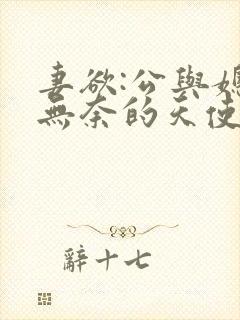 妻欲:公與媳
無奈的天使
辭十七